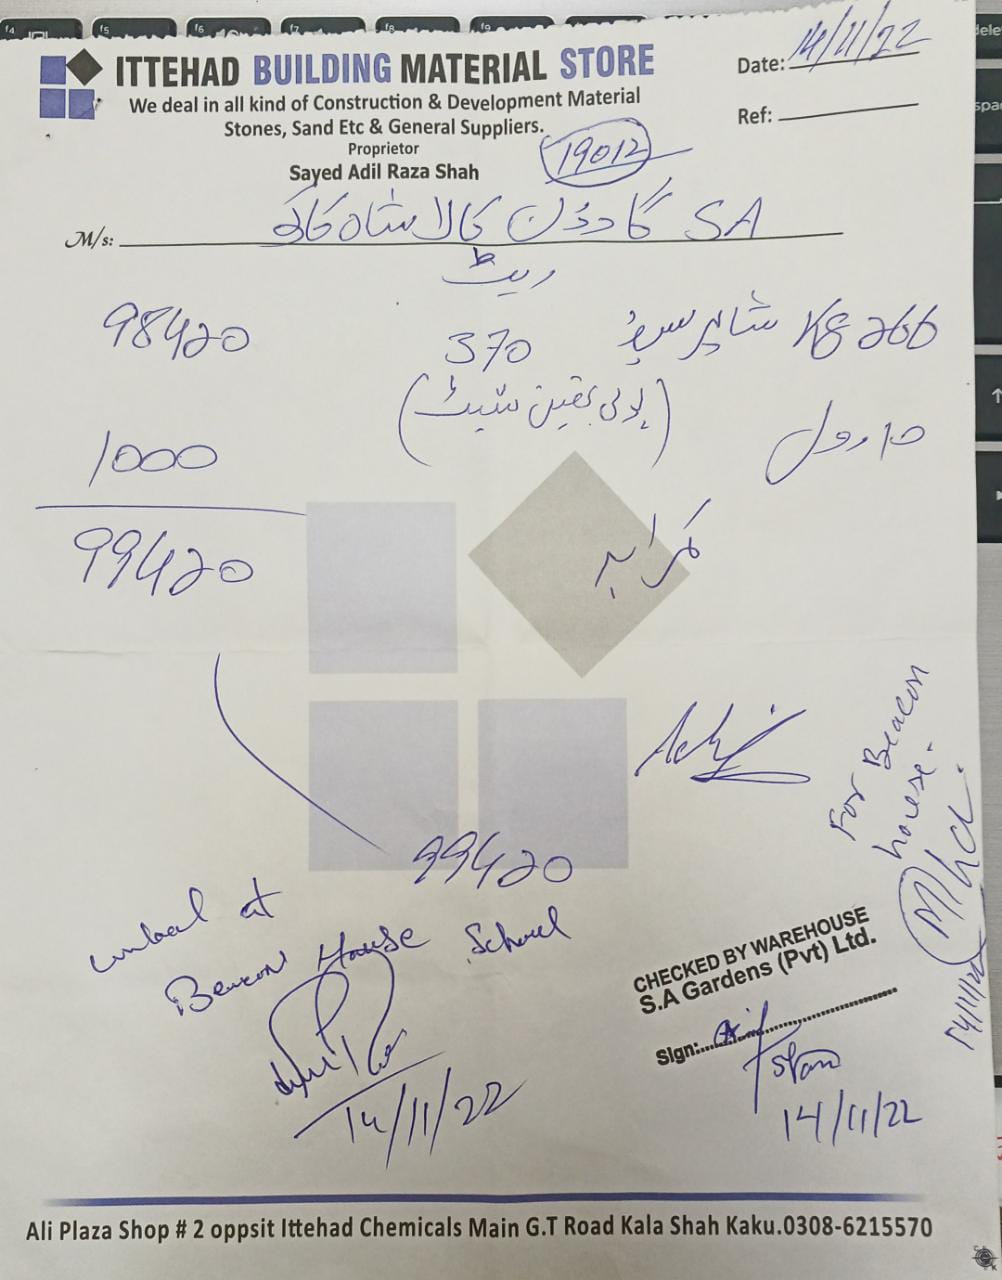 ITTEHAD BUILDING MATERIAL STORE
We deal in all kind of Construction & Development Material
Stones, Sand Etc & General Suppliers.
Proprietor
Sayed Adil Raza Shah
Date: 14/11/22
Ref:
19012
M/s: SA گارڈن کالا شاہ کاکو
ریٹ
266 KG شاپر سپر 370 98420
10 رول (پولی تھین شیٹ)
کرایہ 1000
99420
99420
For Beacon
house.
14/11/22
unload at
Beacon House School
14/11/22
CHECKED BY WAREHOUSE
S.A Gardens (Pvt) Ltd.
Sign:
14/11/22
Ali Plaza Shop # 2 oppsit Ittehad Chemicals Main G.T Road Kala Shah Kaku.0308-6215570